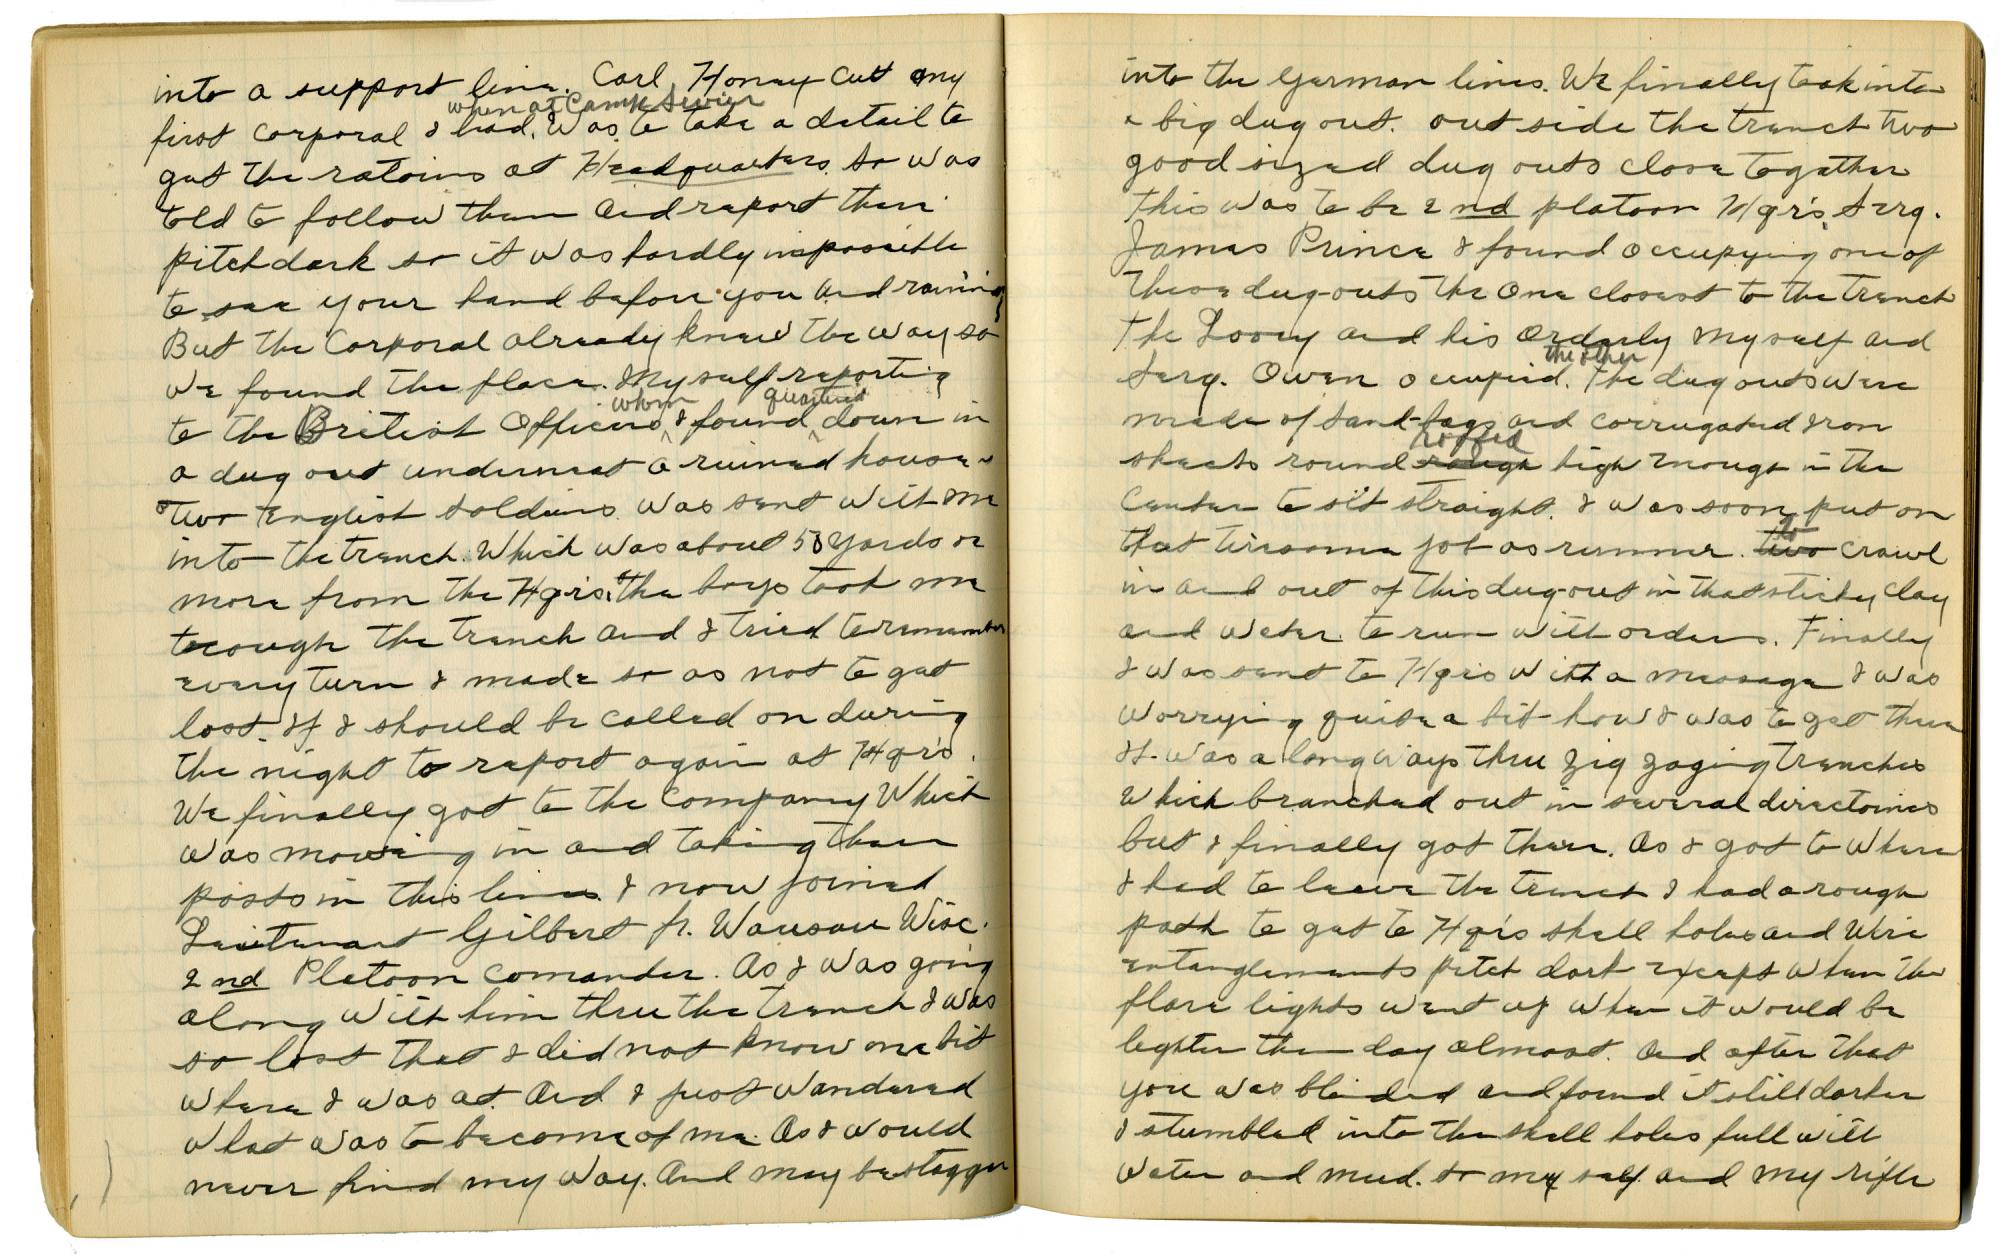 into a support line. Carl Honey cut my
when at Camp Sevier
first corporal I had, was to take a detail to
get the ratoins at Headquarters. so was
told to follow them and report there
pitch dark so it was hardly inpossible
to see your hand before you and raining
But the Corporal already knew the way so
we found the place. Myself reporting
whom quartered
to the British Officers, I found down in
a dug out underneat a ruined house
two English soldiers was sent with me
into the trench. Which was about 50 yards or
more from the Hqrs. the boys took me
through the trench and I tried to remember
every turn I made so as not to get
lost. If I should be called on during
the night to report again at Hqrs.
We finally got to the Company Which
was moving in and taking there
posts in this line. I now joined
Lieutenant Gilbert fr. Wausau Wisc.
2nd Platoon comander. As I was going
along with him thru the trench I was
so lost that I did not know one bit
where I was at. And I just wandered
what was to become of me. As I would
never find my way. And may be stagger
into the German lines. We finally took into
a big dug out. out side the trench two
good sized dug outs close together
This was to be 2nd platoon Hqrs. Serg.
James Prince I found occupying one of
these dug-outs the one closest to the trench
The Looey and his Orderly myself and
the other
Serg. Owen occupied. The dug outs were
made of sand-bags and corrugated iron
roofed
sheets round rough high enough in the
center to sit straight. I was soon put on
to
that tiresome job as runner. two crawl
in and out of this dug-out in that sticky clay
and water to run with orders. Finally
I was sent to Hqrs with a message I was
worrying quite a bit how I was to get there
It was a long ways thru zig zaging trenches
which branched out in several directoins
but I finally got there. As I got to where
I had to leave the trench I had a rough
path to get to Hqrs shell holes and wire
entanglements pitch dark except when the
flare lights went up when it would be
lighter then day almost. And after that
you was blinded and found it still darker
I stumbled into the shell holes full with
water and mud. so my self and my rifle